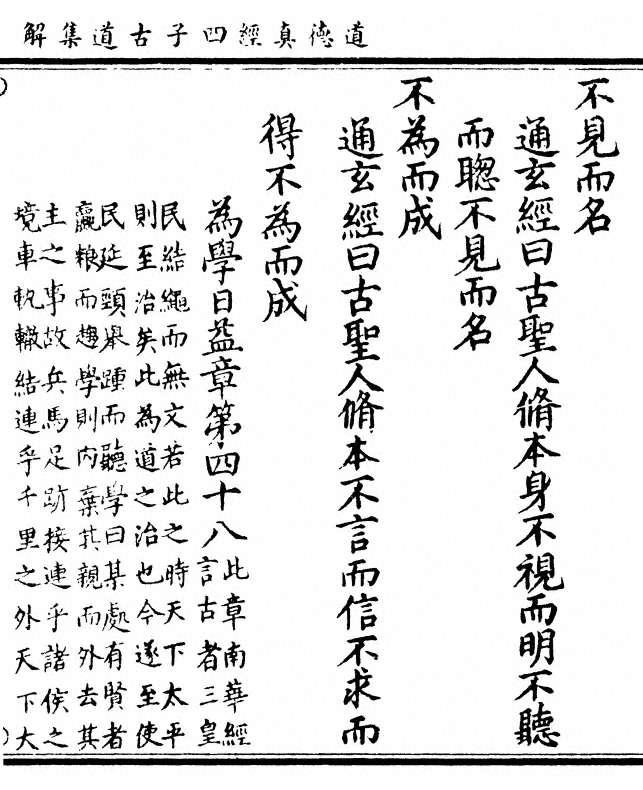 道德真經四子古道集解
不見而名
通玄經曰古聖人脩本身不視而明不聽
而聦不見而名
不為而成
通玄經曰古聖人脩本不言而信不求而
得不為而成
為學日益章第四十八此章南華經
言古者三皇
民結繩而無文若此之時天下太平
則至治矣此為道之治也今遂至使
民延頸舉踵而聽學曰某處有賢者
贏粮而趨學則内棄其親而外去其
主之事故兵馬足跡接連乎諸侯之
境車軌轍結連乎千里之外天下大